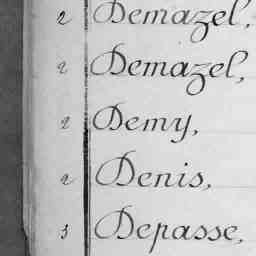 2 Demazel,
2 Demazel,
2 Demy,
2 Denis,
3 Depasse,